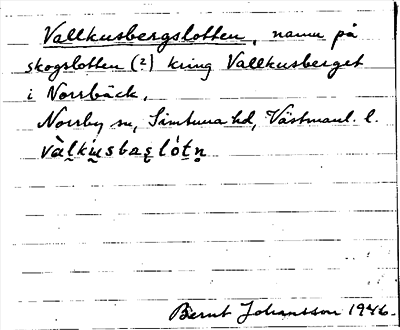 Vallkusbergslotten, namn på
skogslotten (?) kring Vallkusberget
i Norrbäck,
Norrby sn, Simtuna hd, Västmanl. l.
Bernt Johansson 1946.